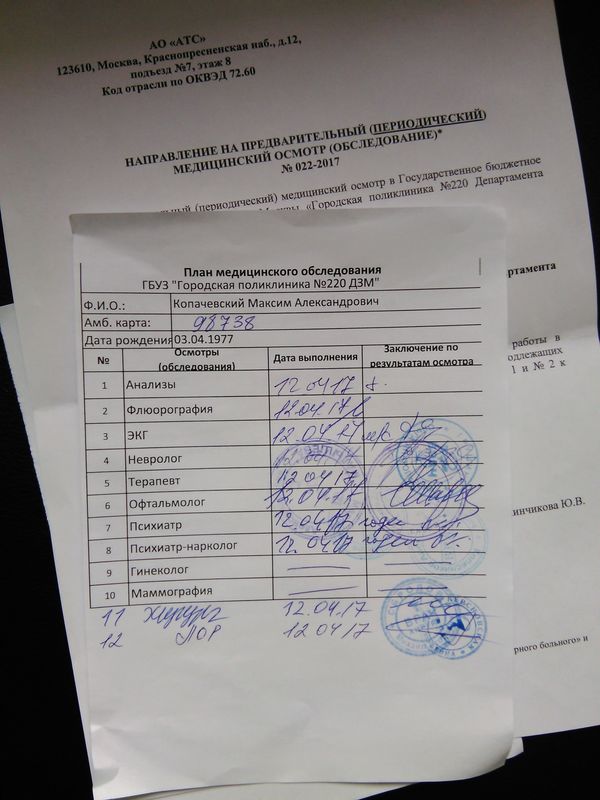 АО «АТС»
123610, Москва, Краснопресненская наб., д.12,
подъезд №7, этаж 8
Код отрасли по ОКВЭД 72.60
НАПРАВЛЕНИЕ НА ПРЕДВАРИТЕЛЬНЫЙ (ПЕРИОДИЧЕСКИЙ)
МЕДИЦИНСКИЙ ОСМОТР (ОБСЛЕДОВАНИЕ)*
№ 022-2017
(периодический) медицинский осмотр в Государственное бюджетное
«Городская поликлиника №220 Департамента
План медицинского обследования
ГБУЗ "Городская поликлиника №220 ДЗМ"
Ф.И.О.: Копачевский Максим Александрович
Амб. карта: 98738
Дата рождения 03.04.1977
№ Осмотры (обследования) Дата выполнения Заключение по результатам осмотра
работы в
1 и № 2 к
1 Анализы 12 04 17
2 Флюорография 12.04.17
3 ЭКГ 12.04.17
4 Невролог
5 Терапевт 12.04.17
6 Офтальмолог 12.04.17
7 Психиатр 12.04.17 годен
8 Психиатр-нарколог 12.04.17 годен
9 Гинеколог
10 Маммография
11 Хирург 12.04.17
12 ЛОР 12 04 17
инчикова Ю.В.
рного больного» и